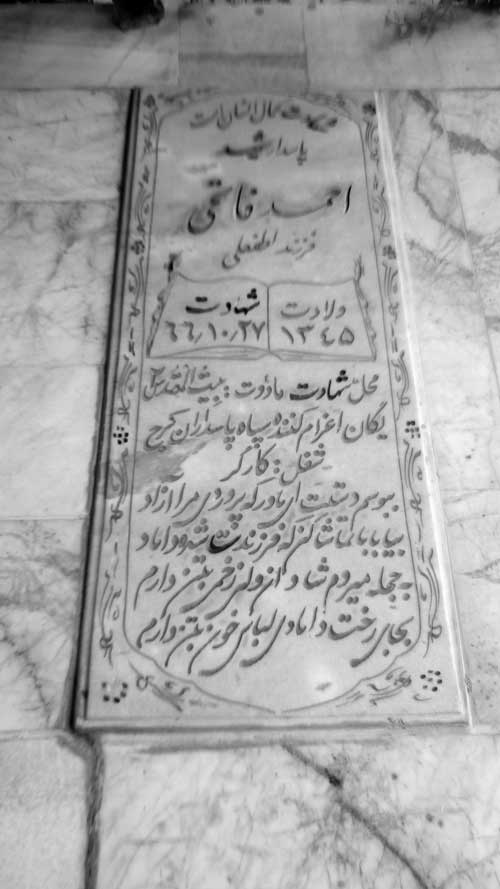 شهادت کمال انسان است
پاسدار شهید
احمد فاتحی
فرزند لطفعلی
ولادت شهادت
۱۳۴۵ ۶۶٫۱۰٫۲۷
محل شهادت ماووت : بیت المقدس
یگان اعزام کننده سپاه پاسداران کرج
شغل : کارگر
ببوسم دستت ای مادر که پروردی مرا آزاد
بیا بابا تماشا کن که فرزندت شود داماد
به حجله میروم شادان ولی زخمی بتن دارم
بجای رخت دامادی لباس خون بتن دارم